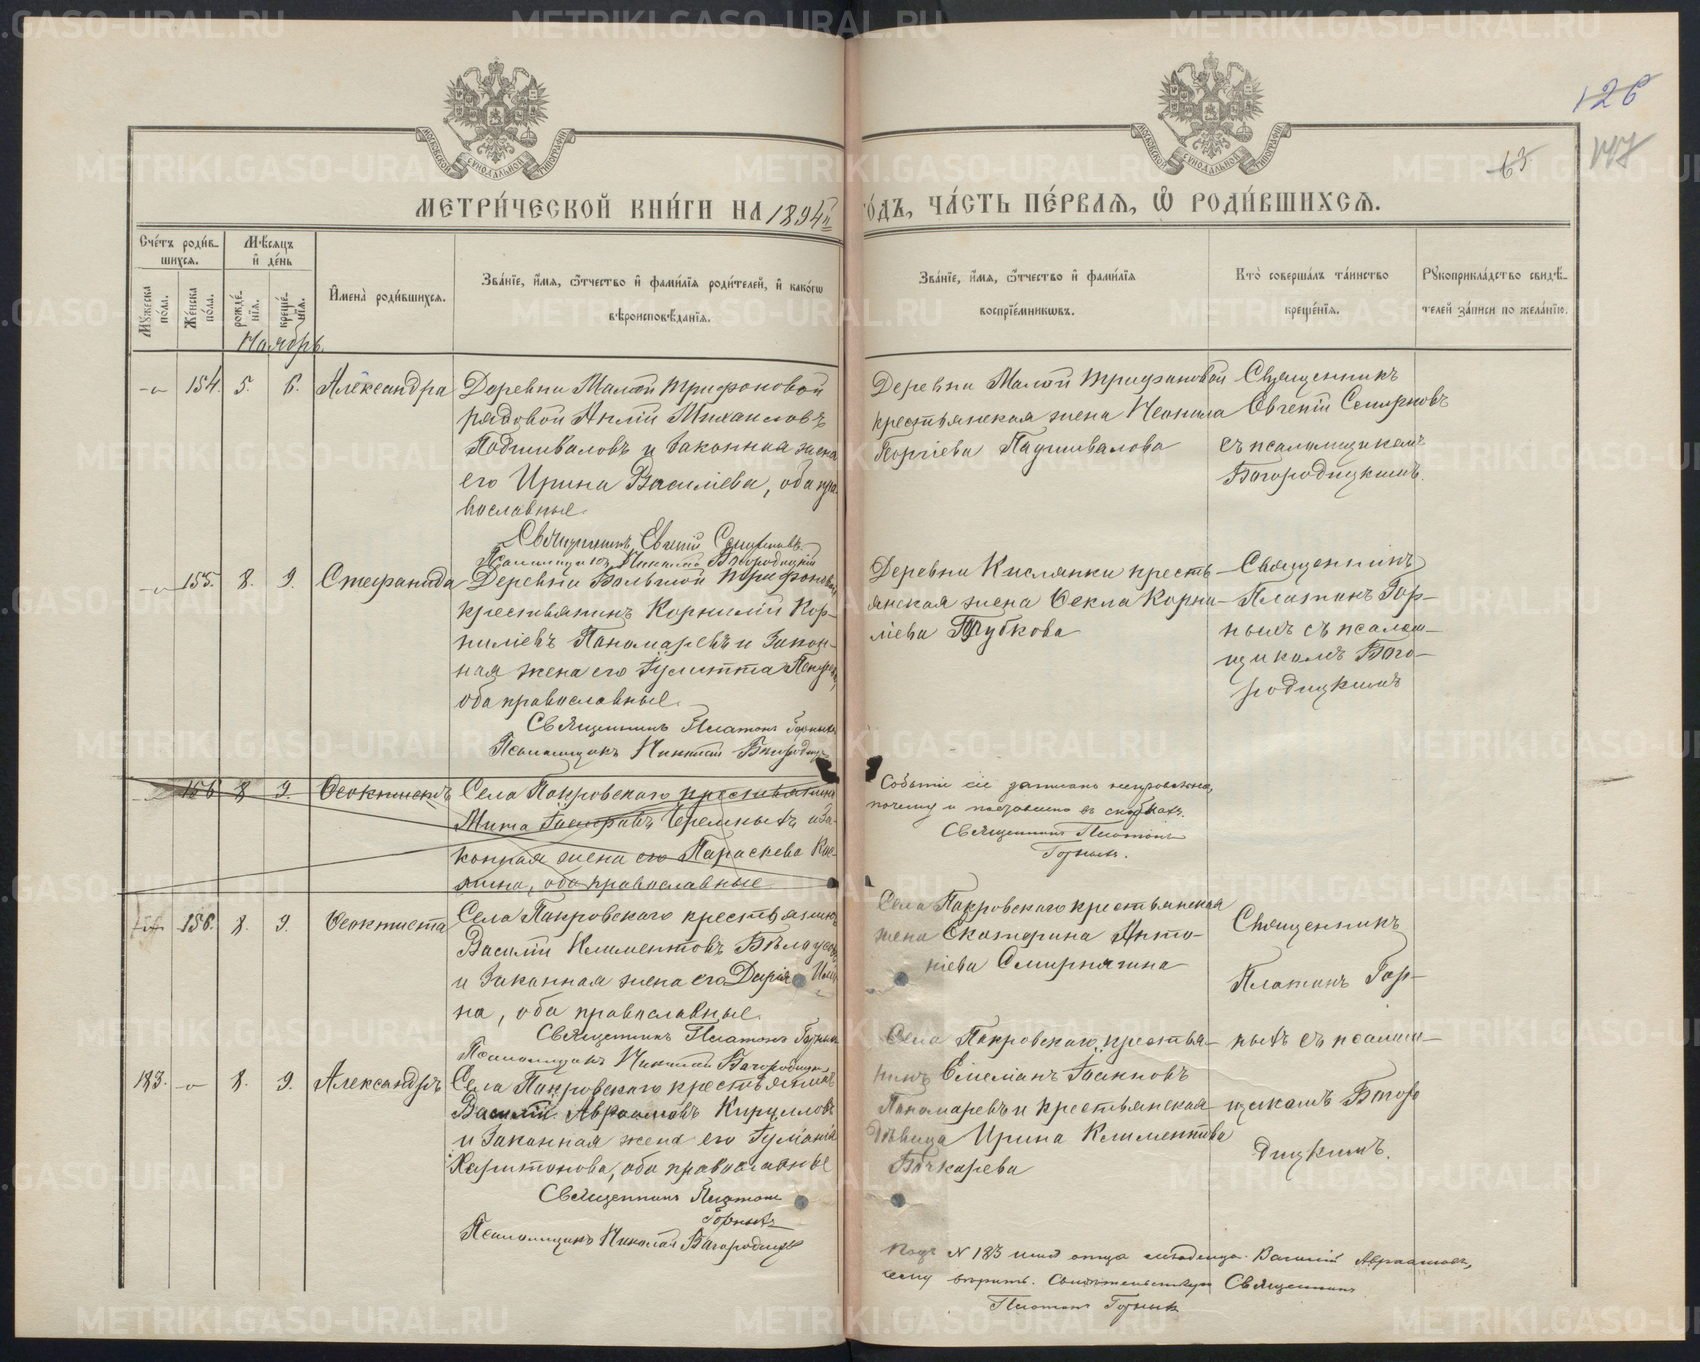 METRIKI.GASO-URAL.RU
126
147
63
МОСКОВСКОЙ СѴНОДАЛЬНОЙ ТИПОГРАФІИ
МОСКОВСКОЙ СѴНОДАЛЬНОЙ ТИПОГРАФІИ
МЕТРИ́ЧЕСКОЙ КНИ́ГИ НА 1894й
ГО́ДЪ, ЧА́СТЬ ПЕ́РВАЯ, Ѽ РОДИ́ВШИХСЯ.
Сче́тъ роди́в-
шихся.
Мѣ́сяцъ
и҆ де́нь
Му́жеска
по́ла.
Же́нска
по́ла.
рожде́-
нїя.
креще́-
нїя.
И҆мена̀ роди́вшихся.
Зва́нїе, и҆́мя, ѻ҆́тчество и҆ фами́лїя роди́телей, и҆ како́гѡ
вѣроисповѣ́данїя.
Зва́нїе, и҆́мя, ѻ҆́тчество и҆ фами́лїя
воспрїе́мникѡвъ.
Кто̀ соверша́лъ та́инство
креще́нїя.
Рꙋкоприкла́дство свидѣ́-
телей за́писи по жела́нїю.
Ноябрь
154. 5. 6. Александра
Деревни Малой Трифоновой
рядовой Ануій Михаиловъ
Подшиваловъ и законная жена
его Ирина Василіева, оба пра-
вославные.
Священникъ Евгеній Смирновъ
Псаломщикъ Николай Богородицкій
Деревни Малой Трифоновой
крестьянская жена Неонила
Георгіева Падшивалова
Священникъ
Евгеній Смирновъ
съ псаломщикомъ
Богородицкимъ.
155. 8. 9. Стефанида
Деревни Большой Трифоновой
крестьянинъ Корнилій Кор-
ниліевъ Пономаревъ и закон-
ная жена его Іулитта
оба православные.
Священникъ Платонъ Горныхъ
Псаломщикъ Николай Богородицкій
Деревни Кислянки кресть-
янская жена Ѳекла Корни-
ліева Трубкова
Священникъ
Платонъ Гор-
ныхъ съ псалом-
щикомъ Бого-
родицкимъ
156 8 9. Ѳеоктистъ
Села Покровскаго крестьянинъ
Черемныхъ и за-
конная жена его Параскева
оба православные.
Событіе сіе записано неправильно,
почему и поставлено въ скобкахъ.
Священникъ Платонъ
Горныхъ.
156. 8. 9. Ѳеоктиста
Села Покровскаго крестьянинъ
Василій Климентовъ Бѣлоусовъ
и законная жена его Дарія
на, оба православные.
Священникъ Платонъ Горныхъ
Псаломщикъ Николай Богородицкій
Села Покровскаго крестьянская
жена Екатерина Анто-
ніева Смирнягина
Священникъ
Платонъ Гор-
ныхъ съ псалом-
щикомъ Богоро
дицкимъ.
183. 8. 9. Александръ
Села Покровскаго крестьянинъ
Василій Авраамовъ Кирилловъ
и законная жена его Іуліанія
Харитонова, оба православные
Священникъ Платонъ
Горныхъ
Псаломщикъ Николай Богородицкій
Села Покровскаго крестья-
нинъ Емеліанъ Іоакимовъ
Пономаревъ и крестьянская
дѣвица Ирина Климентова
Бочкарева
Подъ № 183 имя отца младенца Василій Авраамовъ,
чему вѣрить. Свидѣтельствую Священникъ
Платонъ Горныхъ